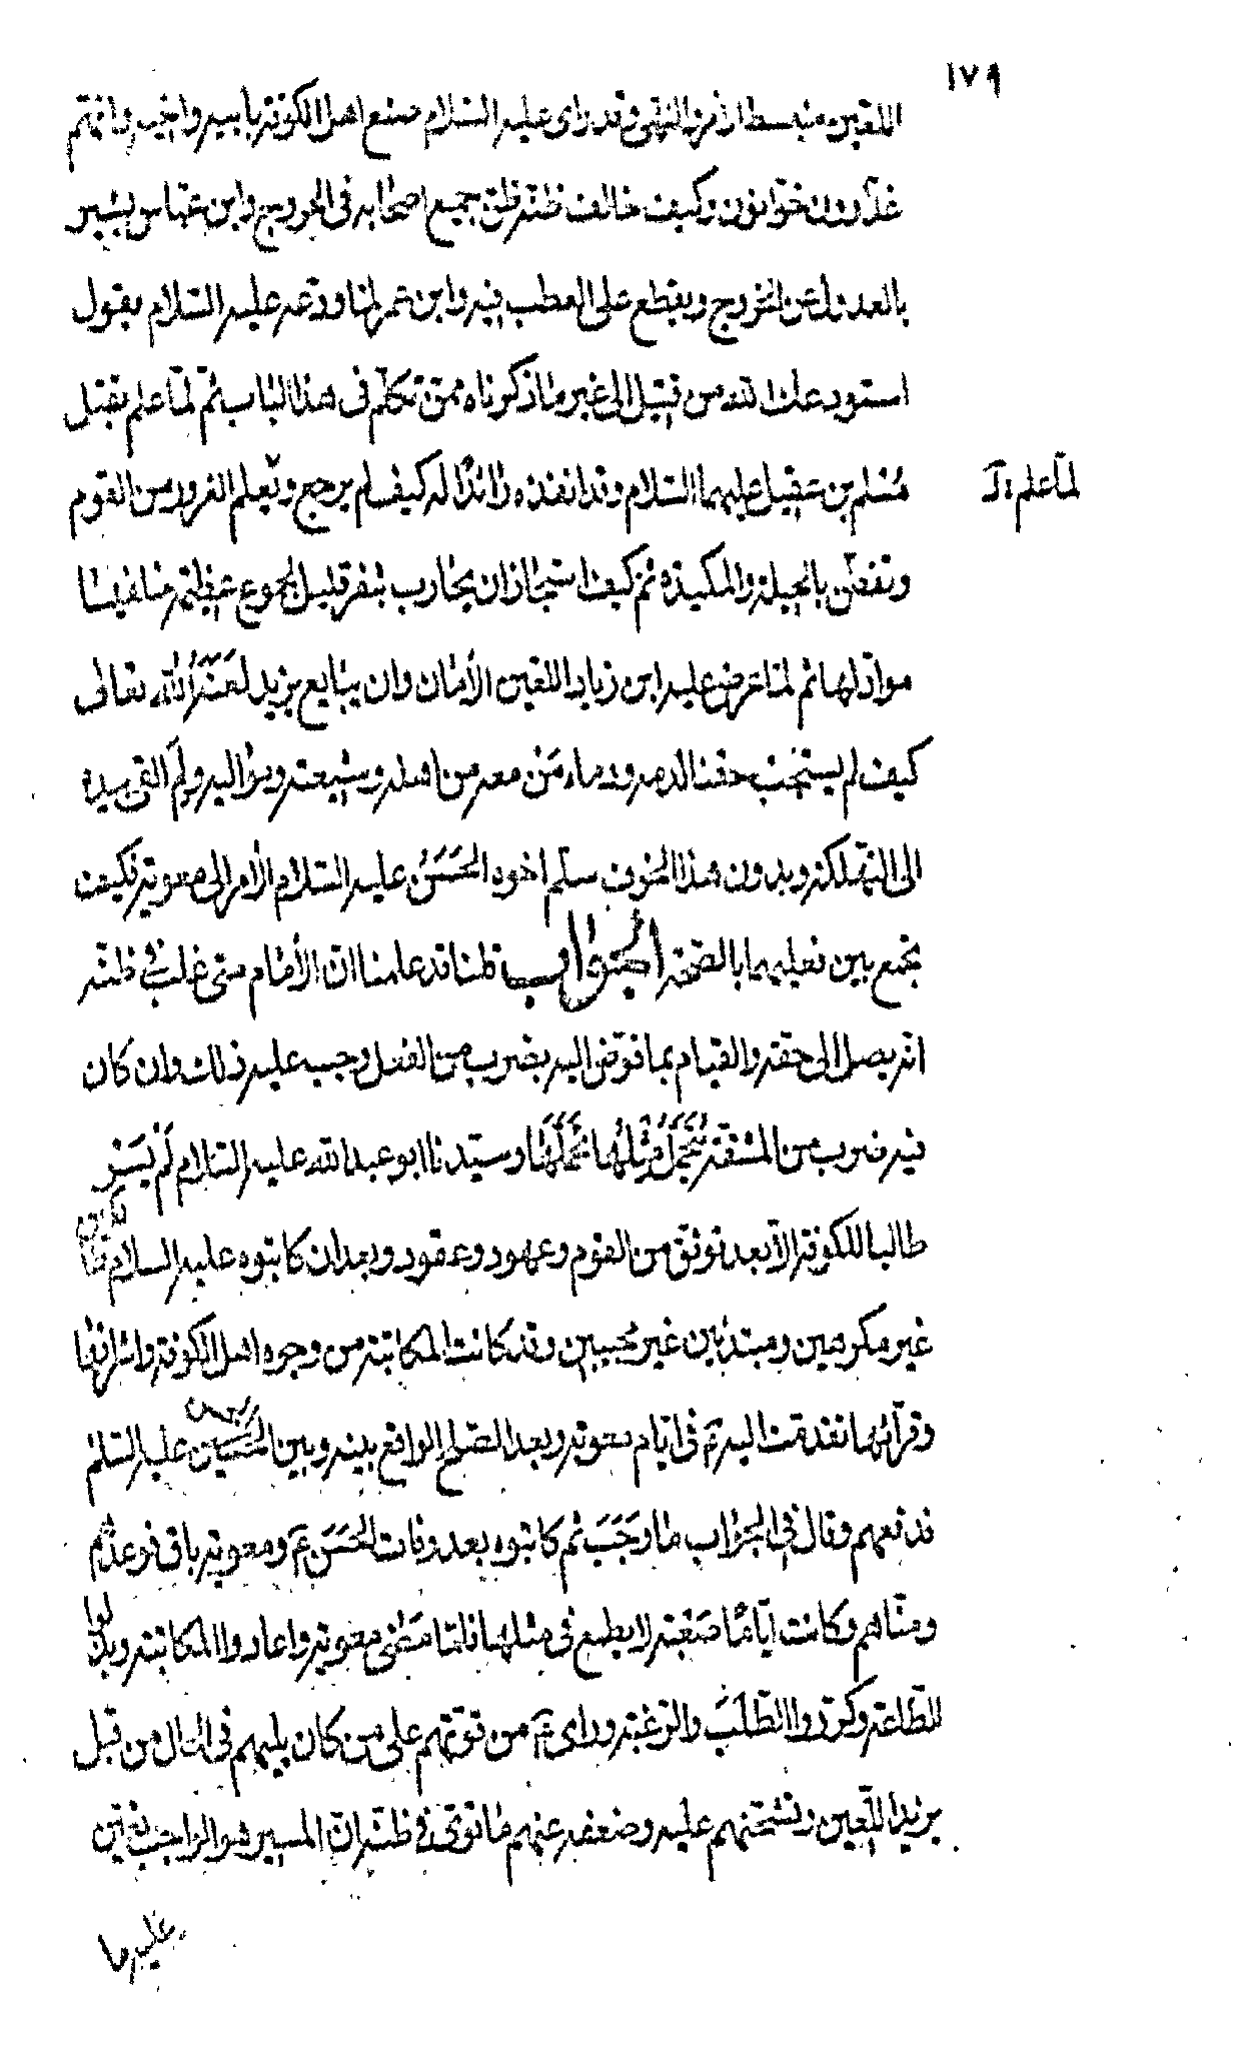 ١٧٩
اللعين منبسط الامر والنهى وقد راى عليه السلام صنع اهل الكوفة بابيه واخيه وانهم
غدارون خوانون وكيف خالف ظنه ظن جميع اصحابه فى الخروج وابن عباس يشير
بالعدول عن الخروج ويقطع على العطب فيه وابن عمر لما ودعه عليه السلام يقول
استودعك الله من قتيل الى غير ما ذكرناه ممن تكلم فى هذا الباب ثم لما علم بقتل
مسلم بن عقيل عليهما السلام وقد انفذه رائدا له كيف لم يرجع ويعلم الغرور من القوم
لما علم
وتفطن بالحيلة والمكيدة ثم كيف استجاز ان يحارب بنفر قليل لجموع عظيمة خلفها
مواد لها ثم لما عرض عليه ابن زياد اللعين الأمان وان يبايع يزيد لعنهم الله تعالى
كيف لم يستجب حقنا لدمه ودماء من معه من اهله وشيعته ومواليه ولم القى بيده
الى التهلكة وبدون هذا الخوف سلم اخوه الحسن عليه السلام الأمر الى معوية فكيف
يجمع بين فعليهما بالصحة الجواب قلنا قد علمنا ان الأمام متى غلب فى ظنه
انه يصل الى حقه والقيام بما فوض اليه بضرب من الفعل وجب عليه ذلك وان كان
فيه ضرب من المشقة يتحمل مثلها تحملها وسيدنا ابو عبد الله عليه السلام لم يسر
طالبا للكوفة الا بعد توثق من القوم وعهود وعقود وبعد ان كاتبوه عليه السلام طائعين
غير مكرهين ومبتدئين غير مجيبين وقد كانت المكاتبة من وجوه اهل الكوفة واشرافها
وقرائها تقدمت اليه فى ايام معوية وبعد الصلح الواقع بينه وبين الحسن عليه السلم
فدفعهم وقال فى الجواب ما وجب ثم كاتبوه بعد وفات الحسن ع ومعوية باق فوعدهم
ومناهم وكانت اياما صعبة لا يطمع فى مثلها فلما مضى معوية واعادوا المكاتبة وبذلوا
للطاعة وكرروا الطلب والرغبة وراى ع من قوتهم على من كان يليهم فى الحال من قبل
يزيد اللعين وتشحنهم عليه وضعفه عنهم ما قوى فى ظنه ان المسير هو الواجب تعين
عليه ما